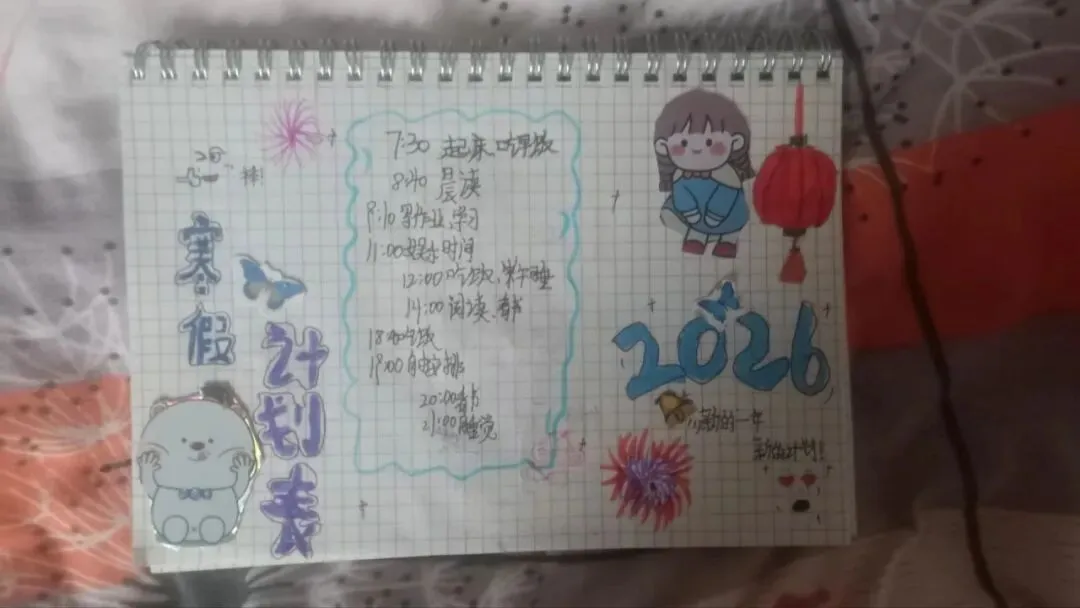 寒假
计划表
7:30 起床、吃早饭
8:40 晨读
9:10 写作业、学习
11:00 娱乐时间
12:00 吃饭、午睡
14:00 阅读、看书
18:00 吃饭
19:00 自由安排
20:00 看书
21:00 睡觉
2026
新的一年
新的计划!